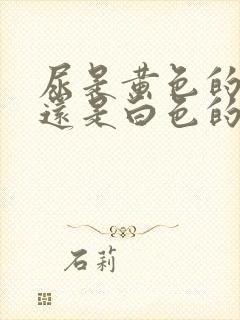 尿是黄色的
還是白色的
石莉